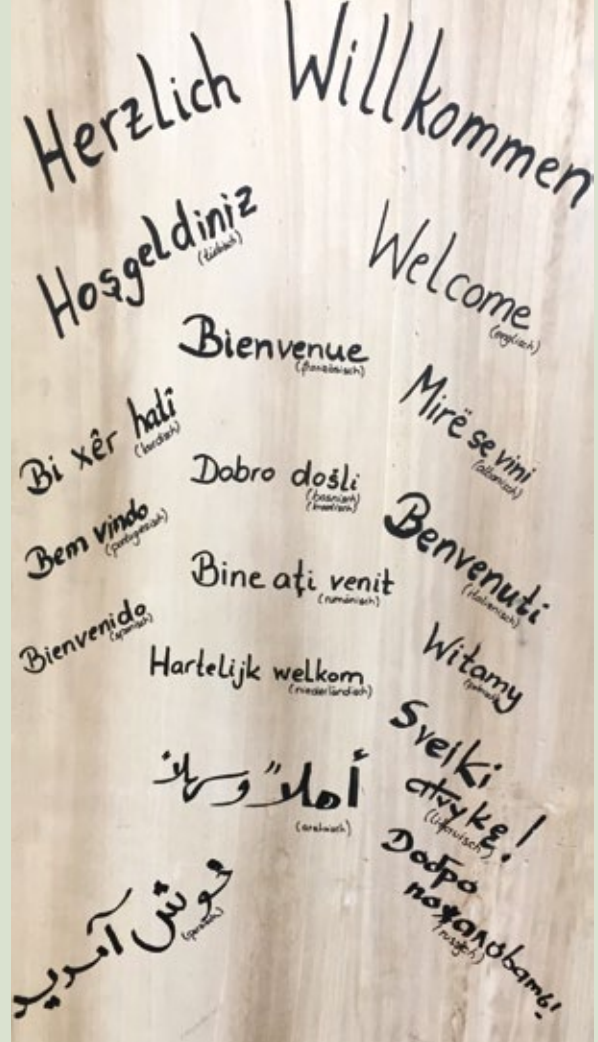 Herzlich Willkommen
Hoşgeldiniz
(türkisch)
Welcome
(englisch)
Bienvenue
(französisch)
Mirë se vini
(albanisch)
Bi xêr hatî
(kurdisch)
Dobro došli
(bosnisch)
(kroatisch)
Bem vindo
(portugiesisch)
Benvenuti
(italienisch)
Bine aţi venit
(rumänisch)
Bienvenido
(spanisch)
Witamy
(polnisch)
Hartelijk welkom
(niederländisch)
Sveiki
atvykę!
(litauisch)
أهلاً وسهلاً
(arabisch)
Добро
пожаловать!
(russisch)
خوش آمدید
(persisch)